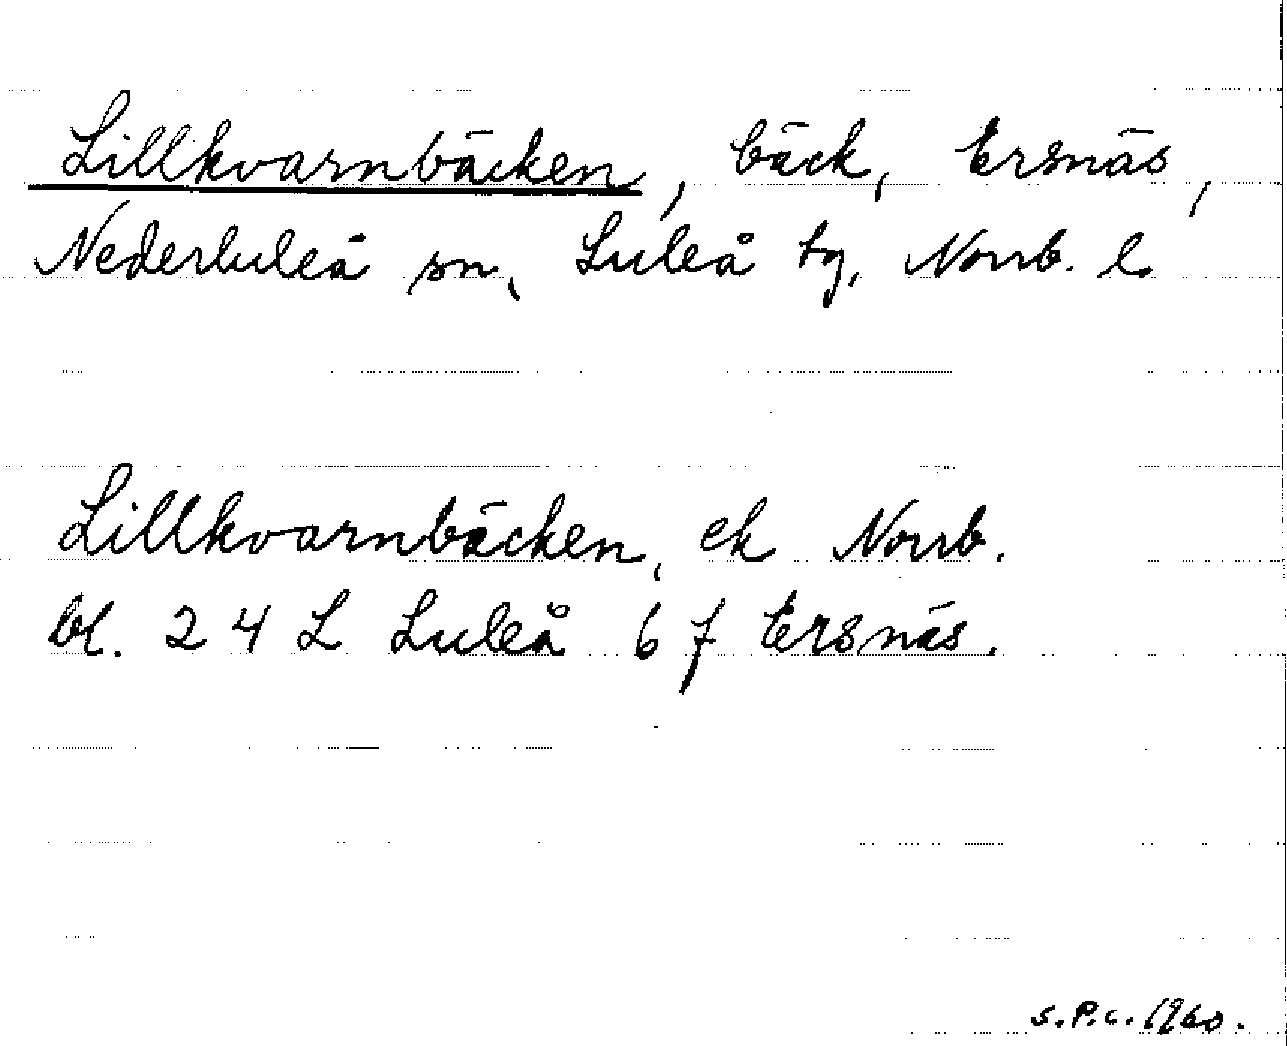 Lillkvarnbäcken, bäck, Ersnäs,
Nederluleå sn, Luleå tg, Norrb. l.
Lillkvarnbäcken, ek Norrb.
bl. 24 L Luleå 6 f Ersnäs.
S.P.C. 1960.